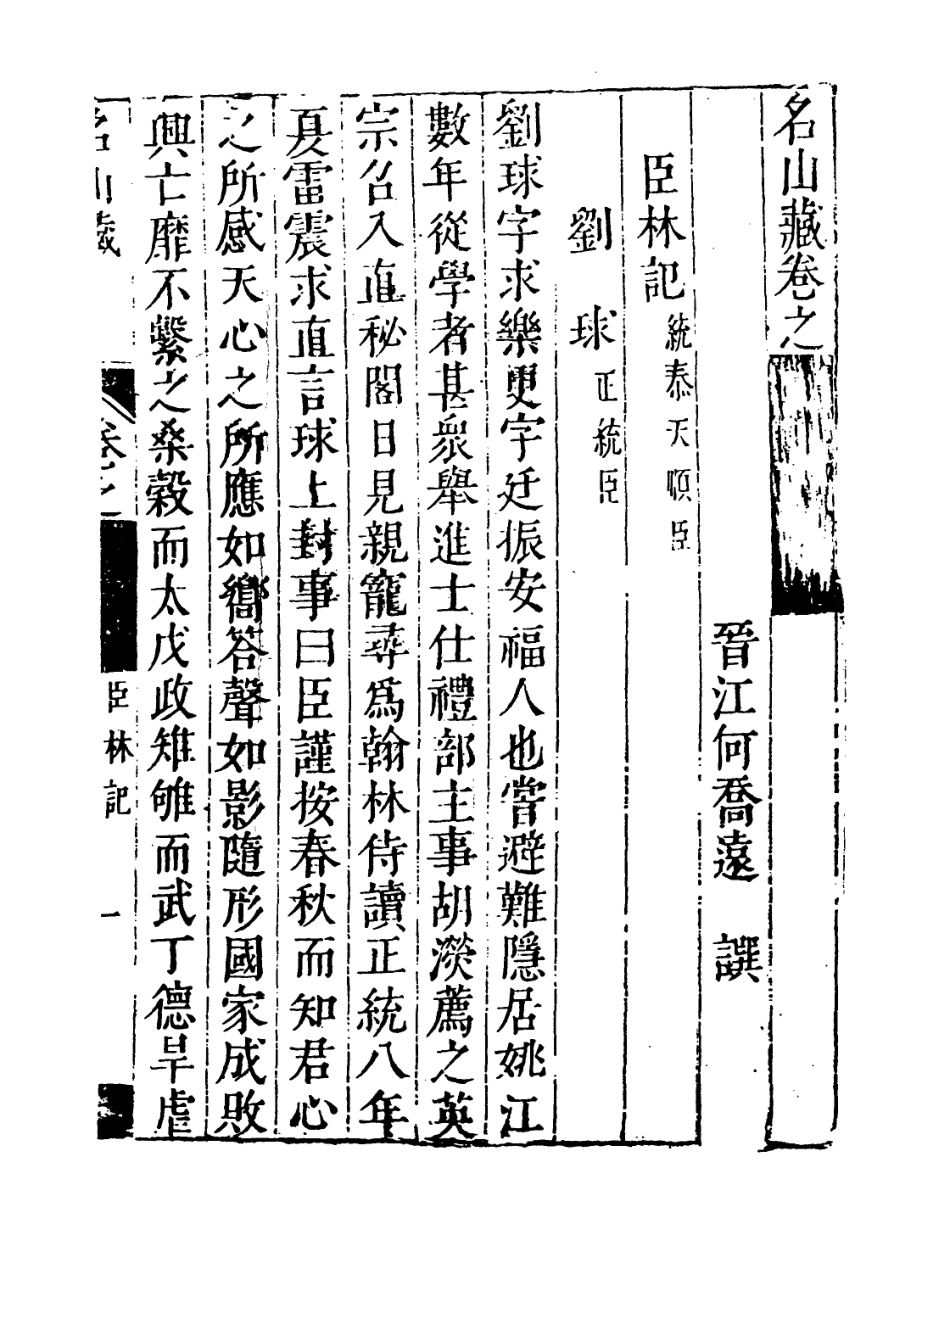 名山藏卷之
晉江何喬遠 譔
臣林記 統泰天順臣
劉球 正統臣
劉球字求樂更字廷振安福人也嘗避難隱居姚江
數年從學者甚眾舉進士仕禮部主事胡濙薦之英
宗召入直秘閣日見親寵尋為翰林侍讀正統八年
夏雷震求直言球上封事曰臣謹按春秋而知君心
之所感天心之所應如響答聲如影隨形國家成敗
興亡靡不繫之桑榖而太戊政雉雊而武丁德旱虐
名山藏 卷之 臣林記 一